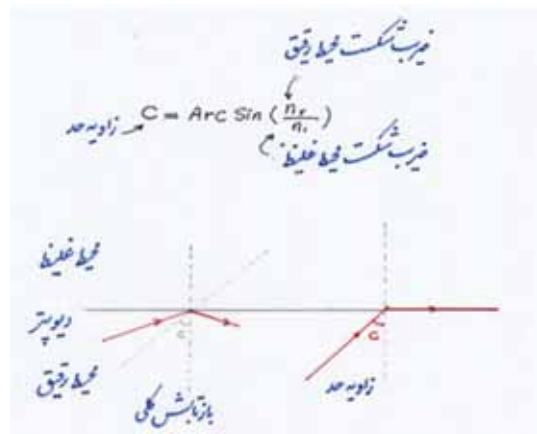 ضریب شکست محیط رقیق
زاویه حد C = Arc Sin (n₂/n₁)
ضریب شکست محیط غلیظ
محیط غلیظ
دیوپتر
محیط رقیق
c
c
بازتابش کلی
زاویه حد